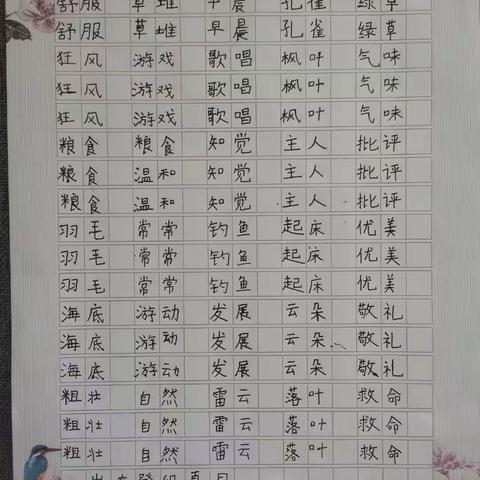 舒服 草堆 早晨 孔雀 绿草
舒服 草堆 早晨 孔雀 绿草
狂风 游戏 歌唱 枫叶 气味
狂风 游戏 歌唱 枫叶 气味
狂风 游戏 歌唱 枫叶 气味
粮食 粮食 知觉 主人 批评
粮食 温和 知觉 主人 批评
粮食 温和 知觉 主人 批评
羽毛 常常 钓鱼 起床 优美
羽毛 常常 钓鱼 起床 优美
羽毛 常常 钓鱼 起床 优美
海底 游动 发展 云朵 敬礼
海底 游动 发展 云朵 敬礼
海底 游动 发展 云朵 敬礼
粗壮 自然 雷云 落叶 救命
粗壮 自然 雷云 落叶 救命
粗壮 自然 雷云 落叶 救命